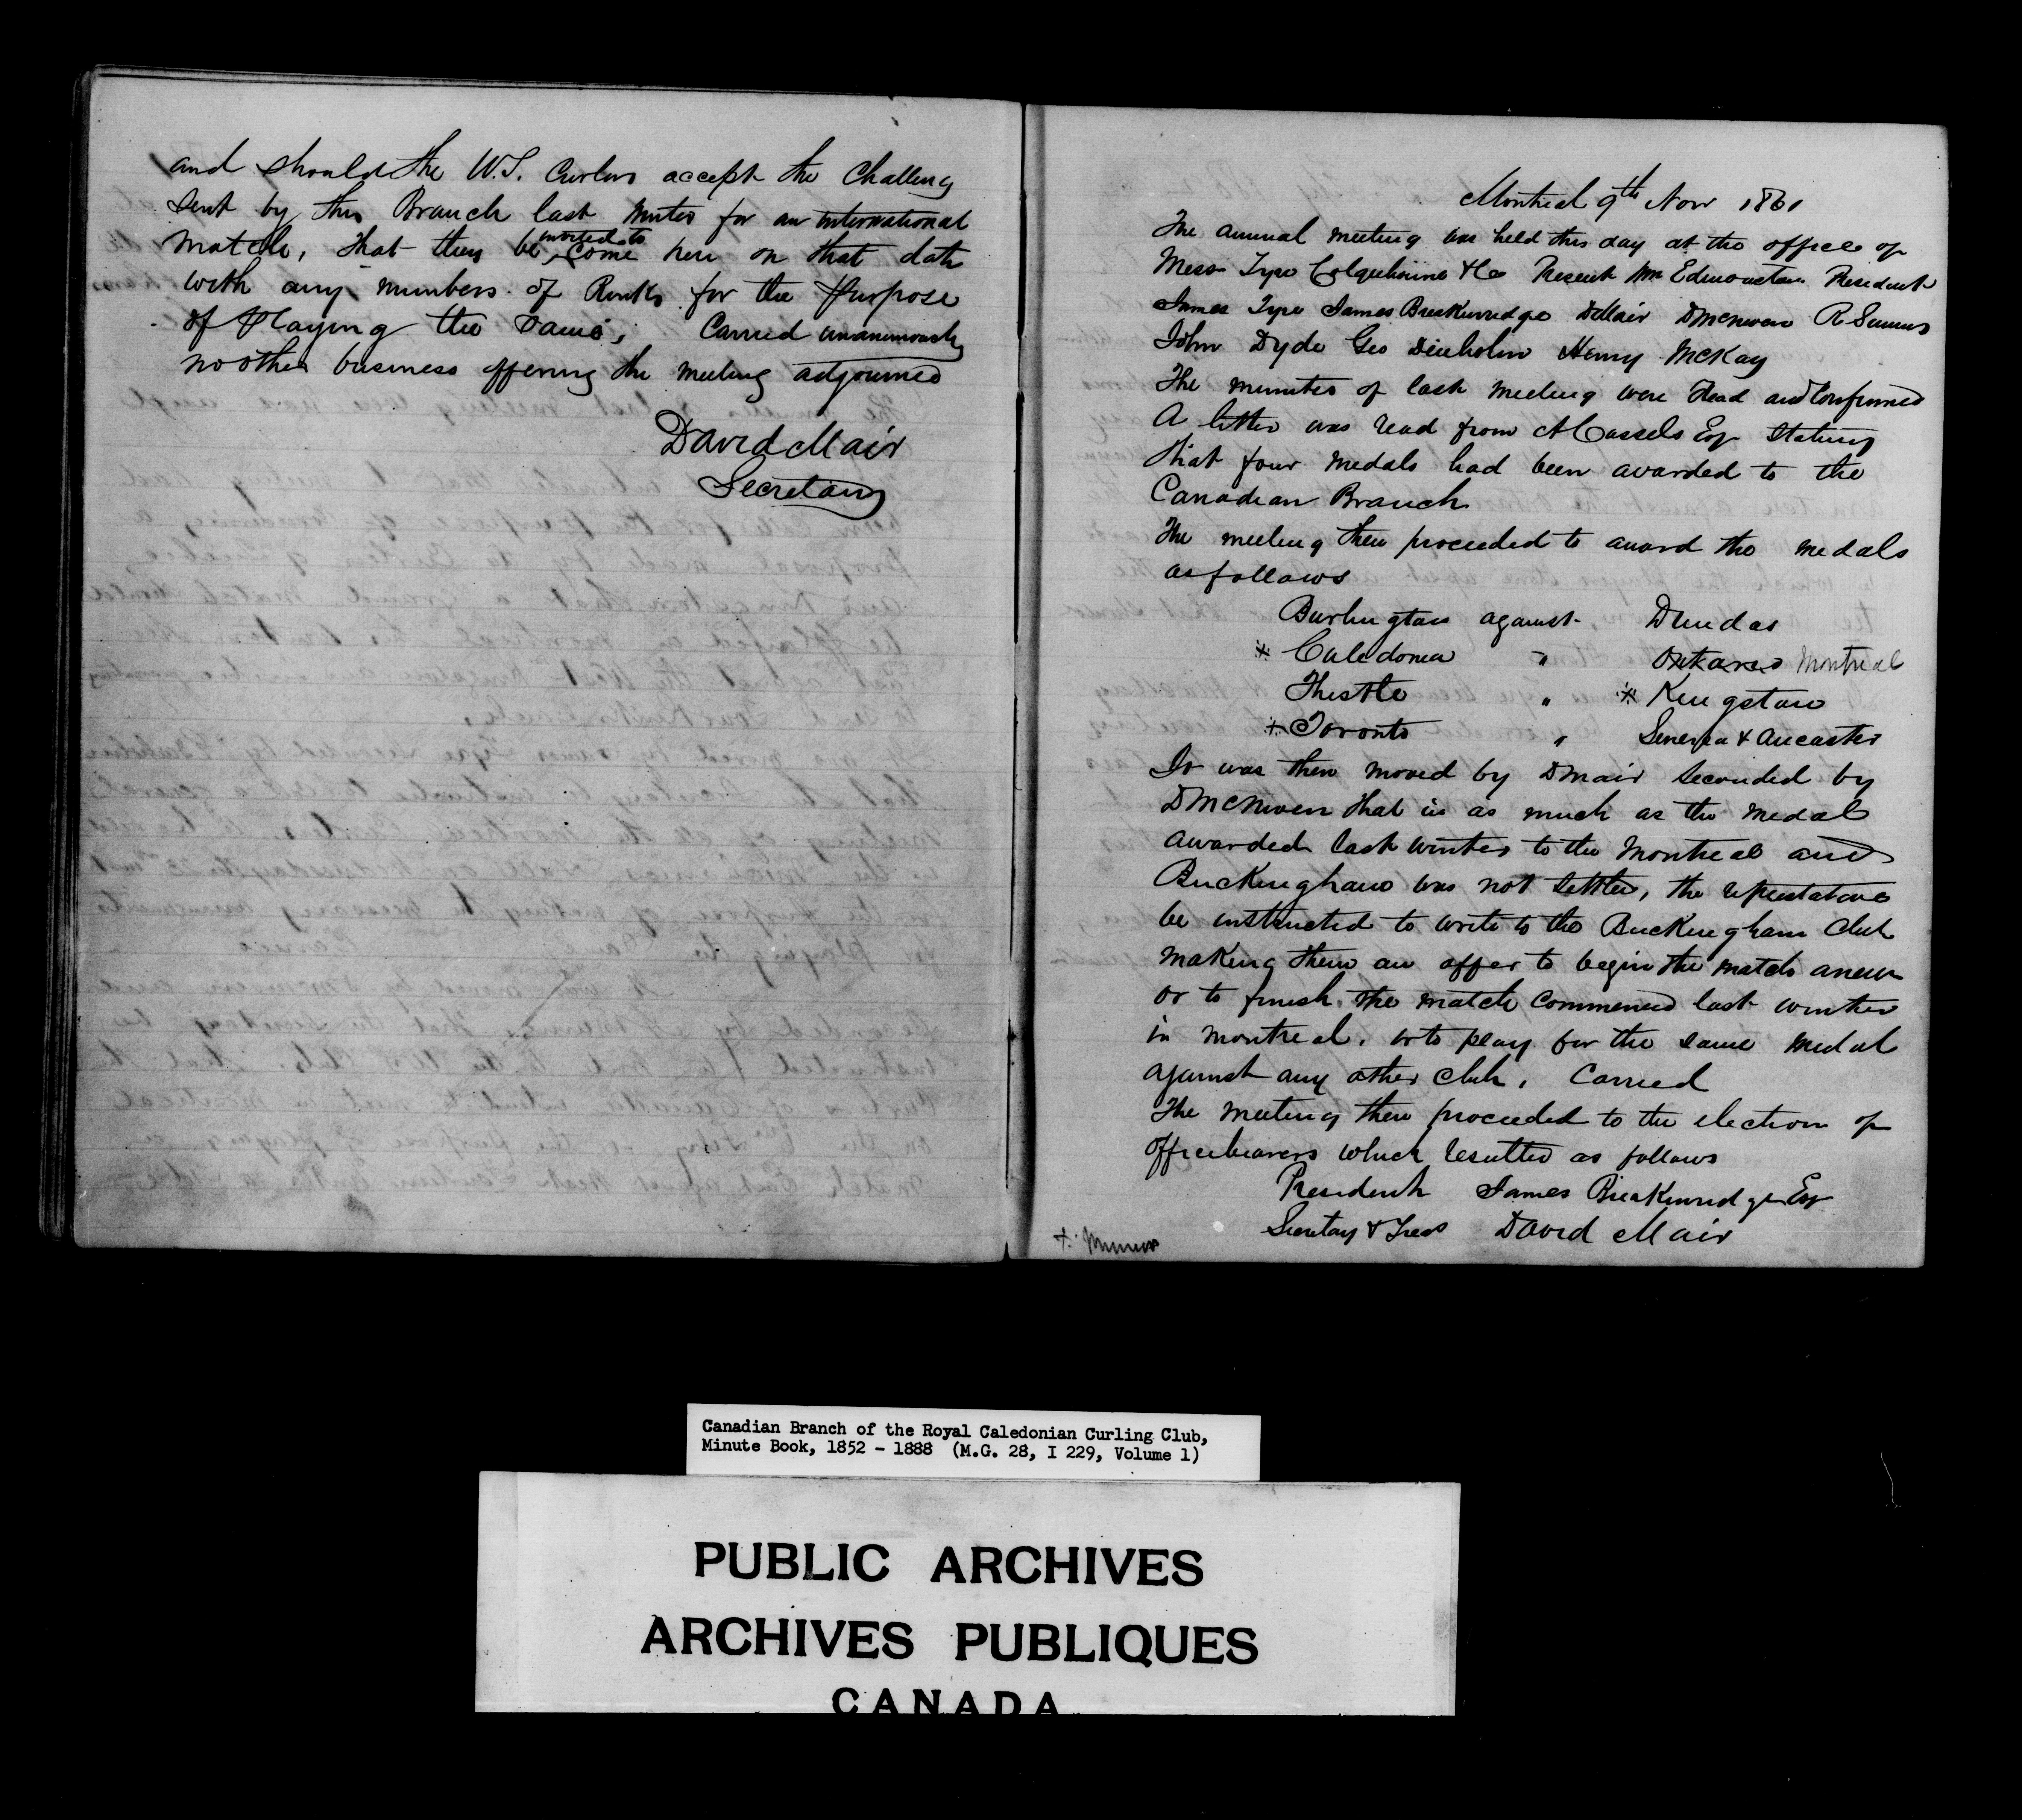 and should the U.S. Curlers accept the Challeng
sent by this Branch last winter for an international
match, that they be invited to come here on that date
with any numbers of Rinks for the purpose
of Playing the same, Carried unanimously
no other business offering the meeting adjourned
David Mair
Secretary
Montreal 9th Nov 1861
The annual meeting was held this day at the office of
Mess Tyre Colquhoune & Co Present Wm Edmonstone President
James Tyre James Breakenridge D Mair D McNiven R
John Dyde Geo Denholm Henry McKay
The minutes of last meeting were Read and Confirmed
A letter was read from A Cassels Esq stating
that four medals had been awarded to the
Canadian Branch
The meeting then proceeded to award the medals
as follows
Burlington against Dundas
* Caledonia " Ontario Montreal
Thistle " * Kingston
+ Toronto " Seneca & Ancaster
It was then moved by D Mair seconded by
D McNiven that in as much as the medal
awarded last winter to the Montreal and
Buckingham was not settled, the
be instructed to write to the Buckingham Club
making them an offer to begin the match anew
or to finish the match commenced last winter
in Montreal, or to play for the same medal
against any other club, Carried
The meeting then proceeded to the election of
officebearers which resulted as follows
President James Breakenridge Esq
Secretay & Treas David Mair
Canadian Branch of the Royal Caledonian Curling Club,
Minute Book, 1852 - 1888 (M.G. 28, I 229, Volume 1)
PUBLIC ARCHIVES
ARCHIVES PUBLIQUES
CANADA